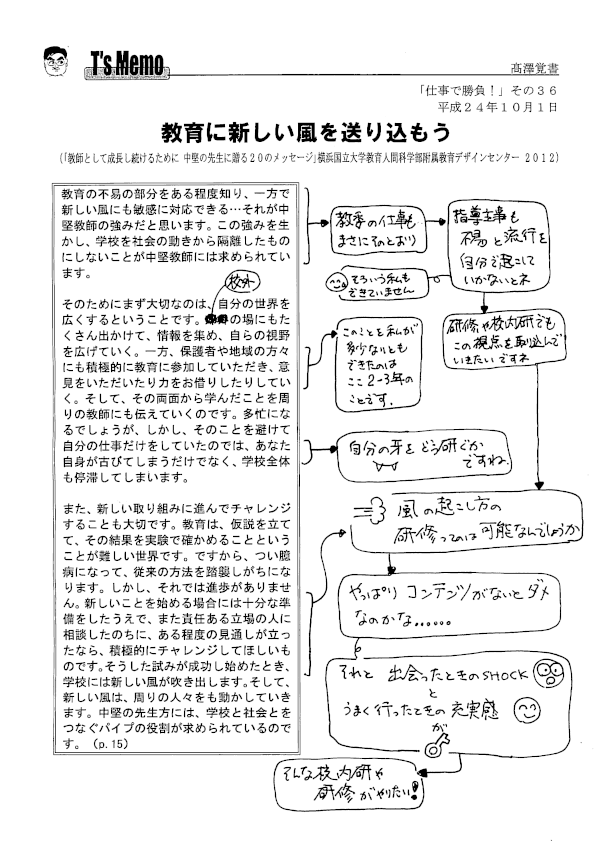 T's Memo
髙澤覚書
「仕事で勝負！」その３６
平成２４年１０月１日
教育に新しい風を送り込もう
（「教師として成長し続けるために 中堅の先生に贈る２０のメッセージ」横浜国立大学教育人間科学部附属教育デザインセンター 2012）
教育の不易の部分をある程度知り、一方で
新しい風にも敏感に対応できる…それが中
堅教師の強みだと思います。この強みを生
かし、学校を社会の動きから隔離したもの
にしないことが中堅教師には求められてい
ます。
校外
そのためにまず大切なのは、自分の世界を
広くするということです。の場にもた
くさん出かけて、情報を集め、自らの視野
を広げていく。一方、保護者や地域の方々
にも積極的に教育に参加していただき、意
見をいただいたり力をお借りしたりしてい
く。そして、その両面から学んだことを周
りの教師にも伝えていくのです。多忙にな
るでしょうが、しかし、そのことを避けて
自分の仕事だけをしていたのでは、あなた
自身が古びてしまうだけでなく、学校全体
も停滞してしまいます。
また、新しい取り組みに進んでチャレンジ
することも大切です。教育は、仮説を立て
て、その結果を実験で確かめることという
ことが難しい世界です。ですから、つい臆
病になって、従来の方法を踏襲しがちにな
ります。しかし、それでは進歩がありませ
ん。新しいことを始める場合には十分な準
備をしたうえで、また責任ある立場の人に
相談したのちに、ある程度の見通しが立っ
たなら、積極的にチャレンジしてほしいも
のです。そうした試みが成功し始めたとき、
学校には新しい風が吹き出します。そして、
新しい風は、周りの人々をも動かしていき
ます。中堅の先生方には、学校と社会とを
つなぐパイプの役割が求められているので
す。（p.15）
教委の仕事も
まさにそのとおり
指導主事も
不易と流行を
自分で起こして
いかないとネ
そういう私も
できていません
研修や校内研でも
この視点を取り込んで
いきたいですね
このことを私が
多少なりとも
できたのは
ここ2-3年の
ことです.
自分の牙をどう研ぐか
ですね.
風の起こし方の
研修ってのは可能なんでしょうか
やっぱりコンテンツがないとダメ
なのかな……
それと 出会ったときのSHOCK
と
うまく行ったときの充実感
が
そんな校内研や
研修がやりたい!